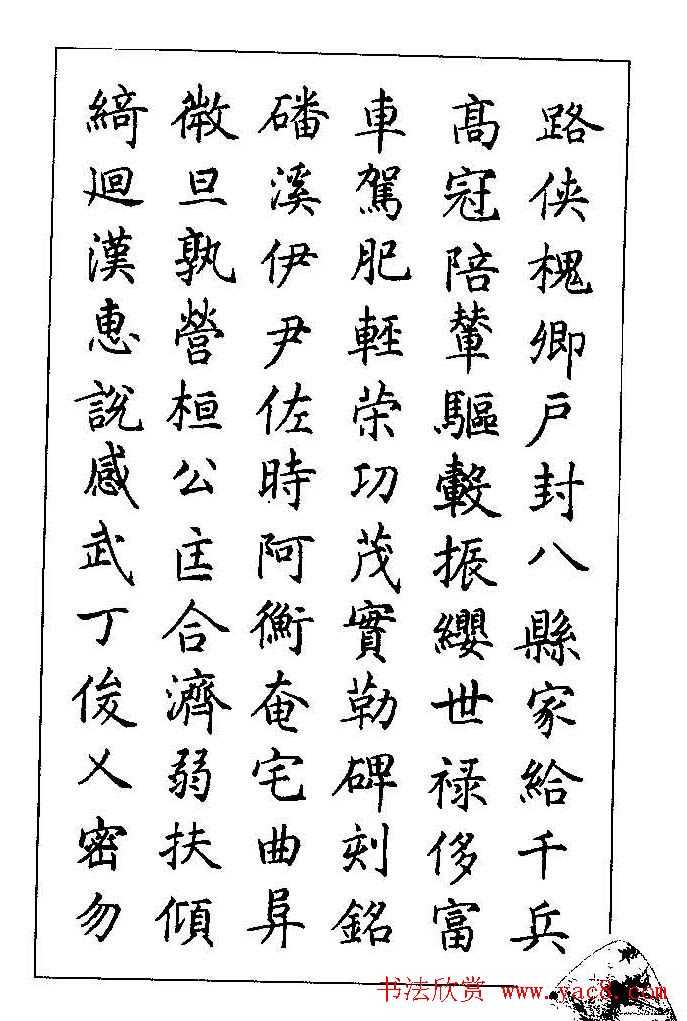 路俠槐卿戶封八縣家給千兵
高冠陪輦驅轂振纓世祿侈富
車駕肥輕荣功茂實勒碑刻銘
磻溪伊尹佐時阿衡奄宅曲阜
微旦孰營桓公匡合濟弱扶傾
綺迴漢惠說感武丁俊乂密勿
书法欣赏 www.yac8.com